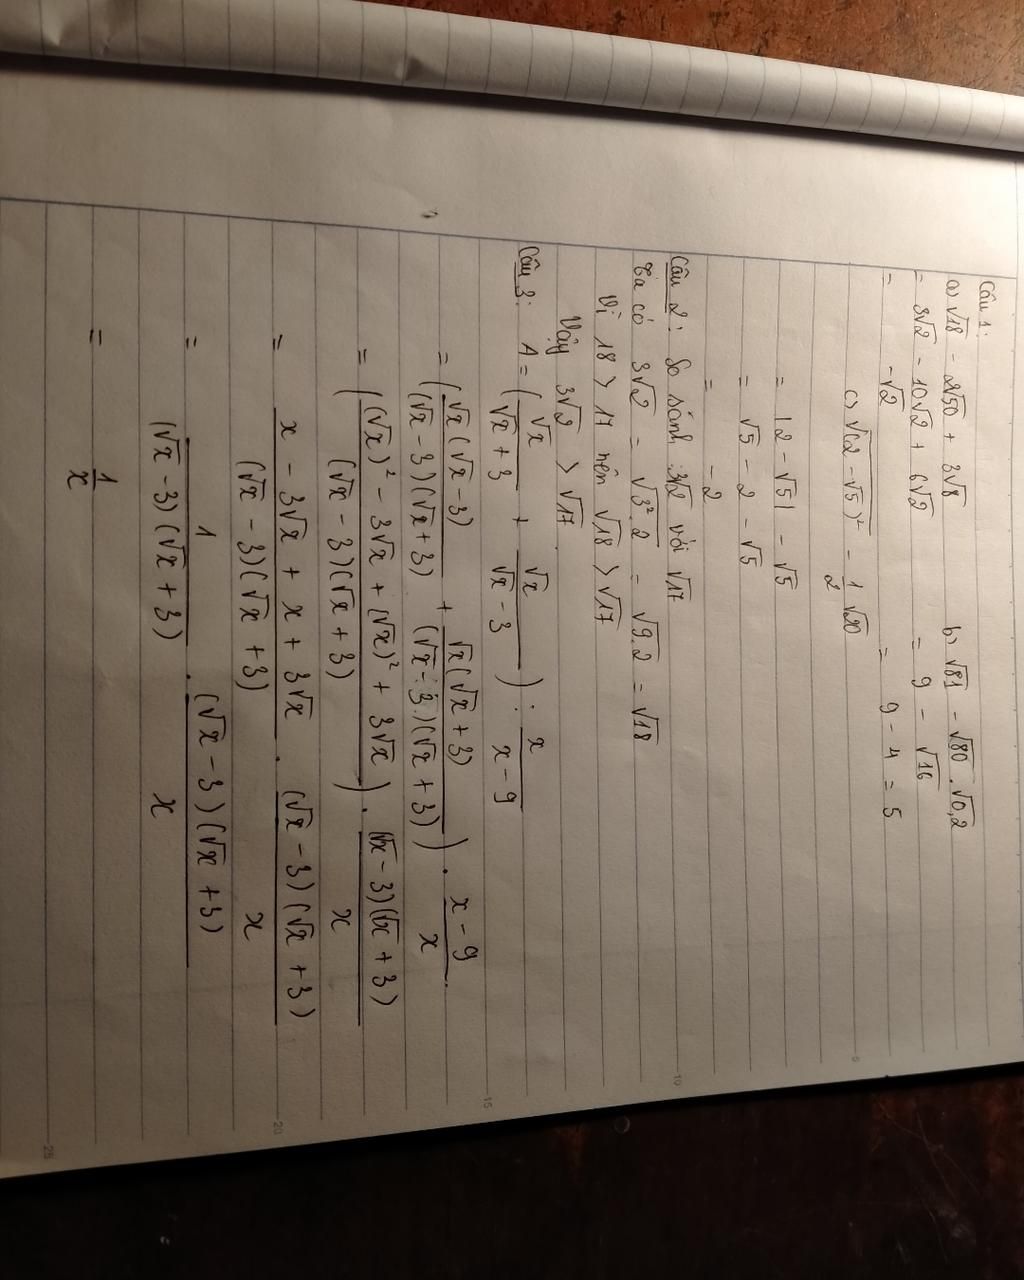 Câu 1:
a) √18 - 2√50 + 3√8
= 3√2 - 10√2 + 6√2
= -√2
b) √81 - √80 . √0,2
= 9 - √16
= 9 - 4 = 5
c) √(2 - √5)² - 1/2 √20
= |2 - √5| - √5
= √5 - 2 - √5
= -2
Câu 2: So sánh 3√2 với √17
Ta có 3√2 = √3².2 = √9.2 = √18
Vì 18 > 17 nên √18 > √17
Vậy 3√2 > √17
Câu 3: A = (√x/(√x + 3) + √x/(√x - 3)) : x/(x - 9)
= (√x(√x - 3)/(√x - 3)(√x + 3) + √x(√x + 3)/(√x - 3)(√x + 3)) . (x - 9)/x
= ((√x)² - 3√x + (√x)² + 3√x/(√x - 3)(√x + 3)) . (√x - 3)(√x + 3)/x
= x - 3√x + x + 3√x/(√x - 3)(√x + 3) . (√x - 3)(√x + 3)/x
= 1/(√x - 3)(√x + 3) . (√x - 3)(√x + 3)/x
= 1/x
5
10
15
20
25